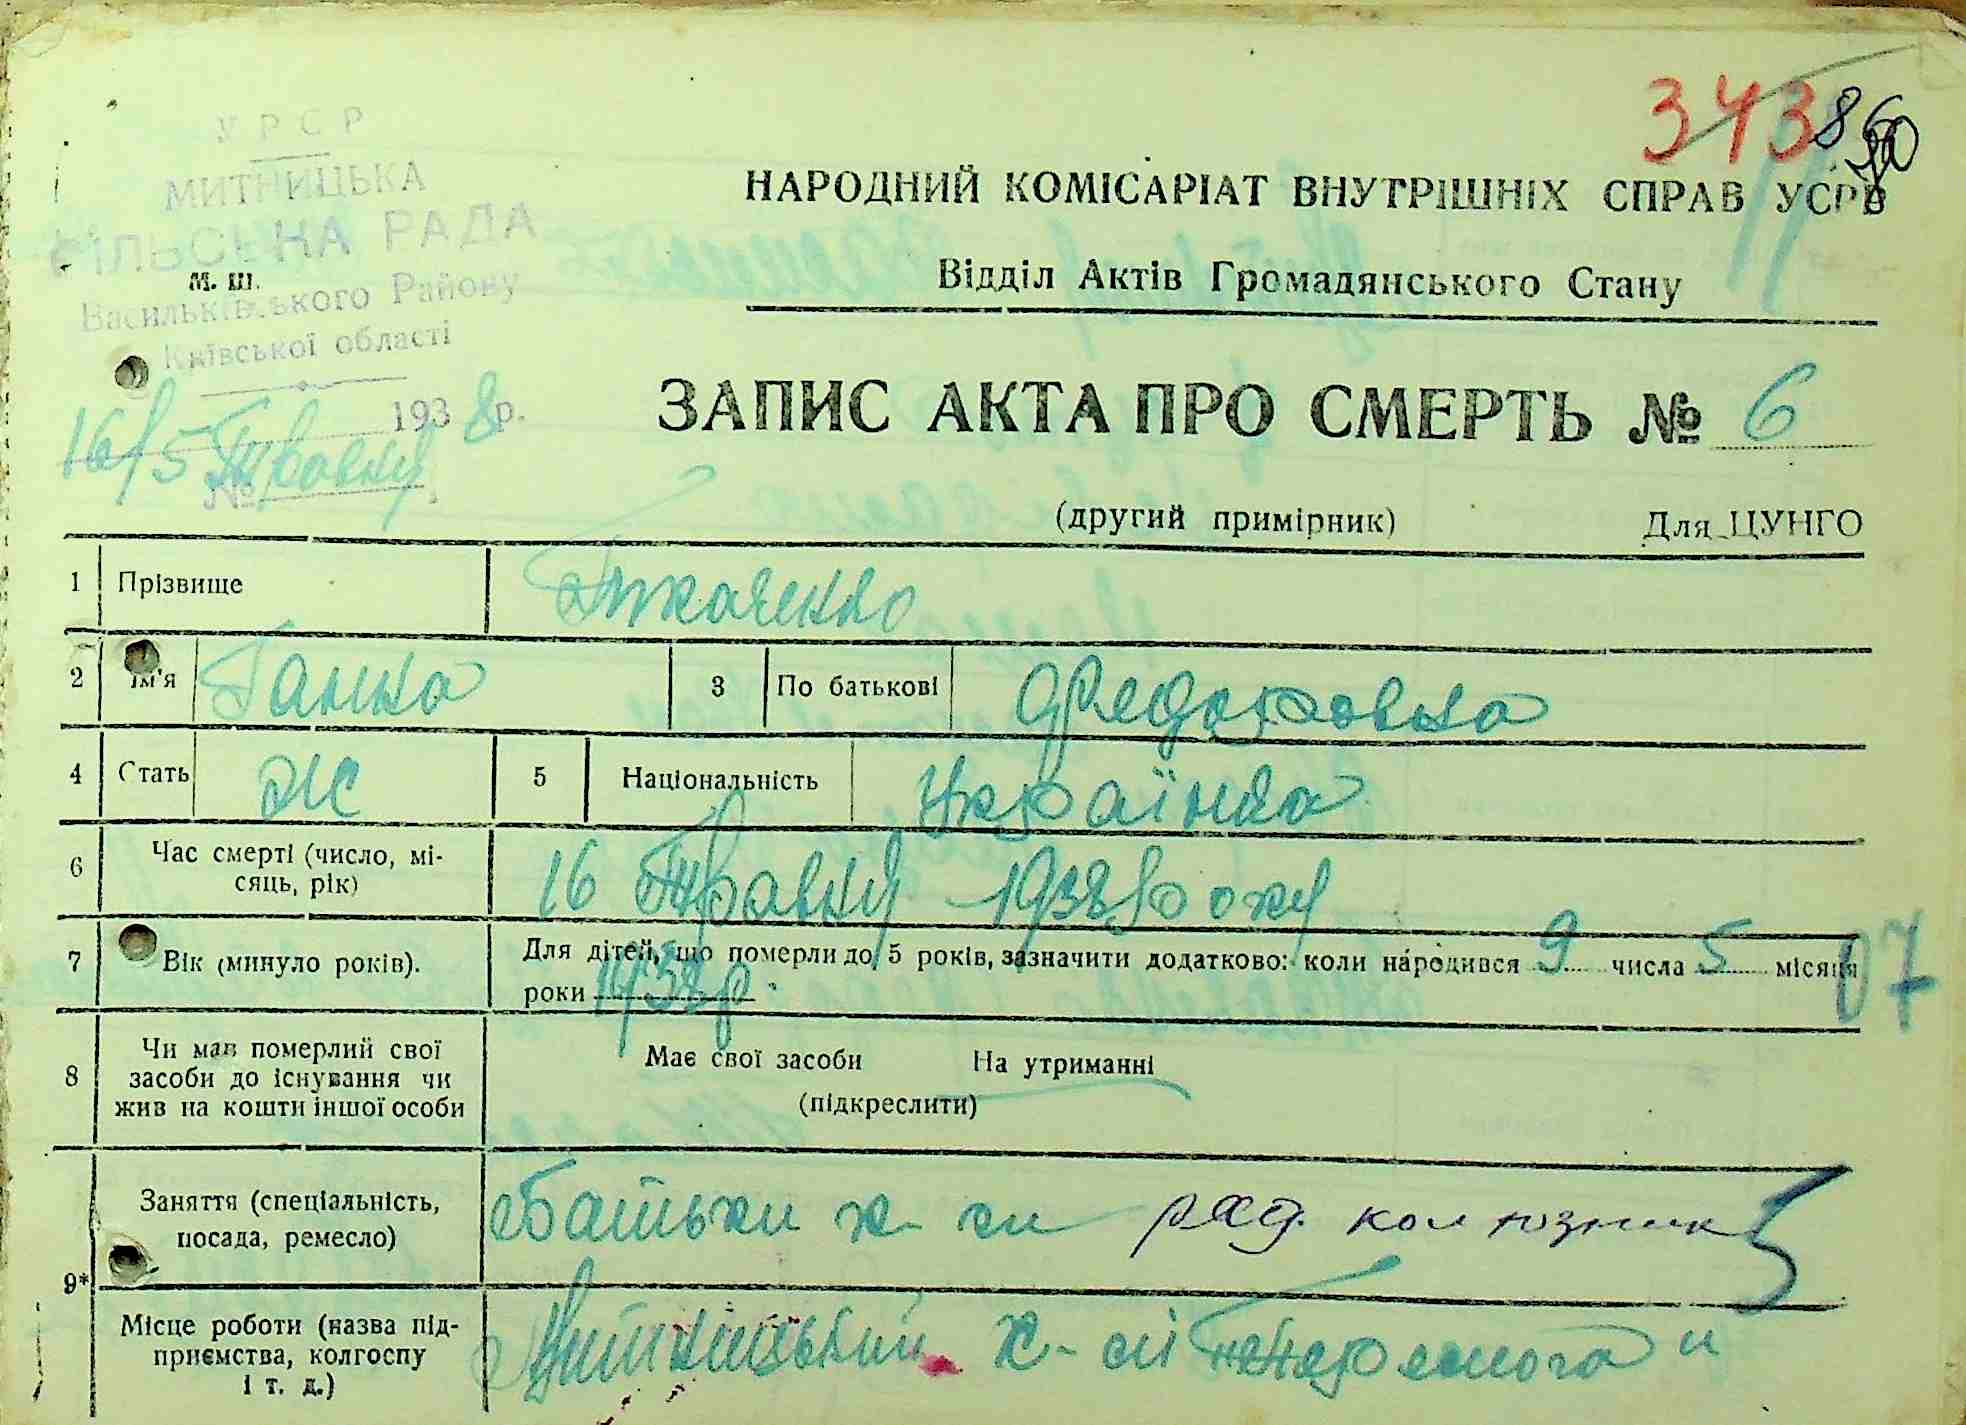 343 86
УРСР
МИТНИЦЬКА
СІЛЬСЬКА РАДА
М. Ш.
Васильківського Району
Київської області
16/5 Травня 1938р.
№
НАРОДНИЙ КОМІСАРІАТ ВНУТРІШНІХ СПРАВ УСРР
Відділ Актів Громадянського Стану
ЗАПИС АКТА ПРО СМЕРТЬ № 6
(другий примірник) Для ЦУНГО
1 Прізвище Ткаченко
2 Ім'я Ганна 3 По батькові Федоровна
4 Стать Ж 5 Національність Українка
6 Час смерті (число, мі-
сяць, рік) 16 Травня 1938 року
7 Вік (минуло років). Для дітей, що померли до 5 років, зазначити додатково: коли народився 9 числа 5 місяця 07
роки 1938р
8 Чи мав померлий свої
засоби до існування чи
жив на кошти іншої особи
Має свої засоби На утриманні
(підкреслити)
9* Заняття (спеціальність,
посада, ремесло) Батьки к-ки ряд. колгозник
Місце роботи (назва під-
приємства, колгоспу
і т. д.) Митницький к-сп